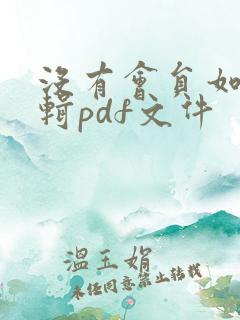 沒有會員如
輯pdf文件
溫玉娟
未經同意禁止轉載